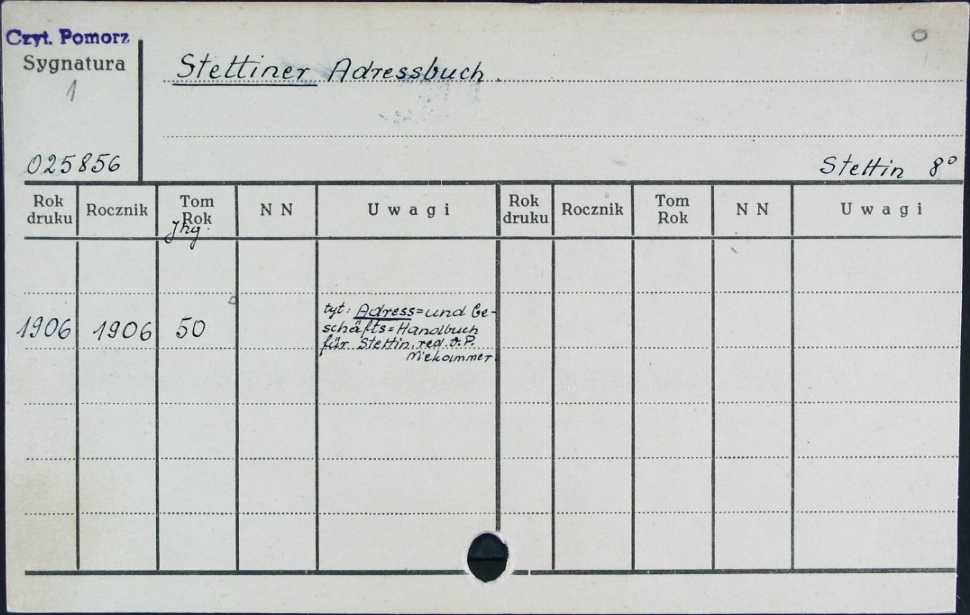 Czyt. Pomorz
Sygnatura
1
025856
Stettiner Adressbuch.
Stettin 8°
Rok druku Rocznik Tom Rok N N Uwagi Rok druku Rocznik Tom Rok N N Uwagi
Jhg.
1906 1906 50
tyt: Adress=und Ge-
schäfts=Handbuch
für Stettin. red. v. P.
Niekammer.